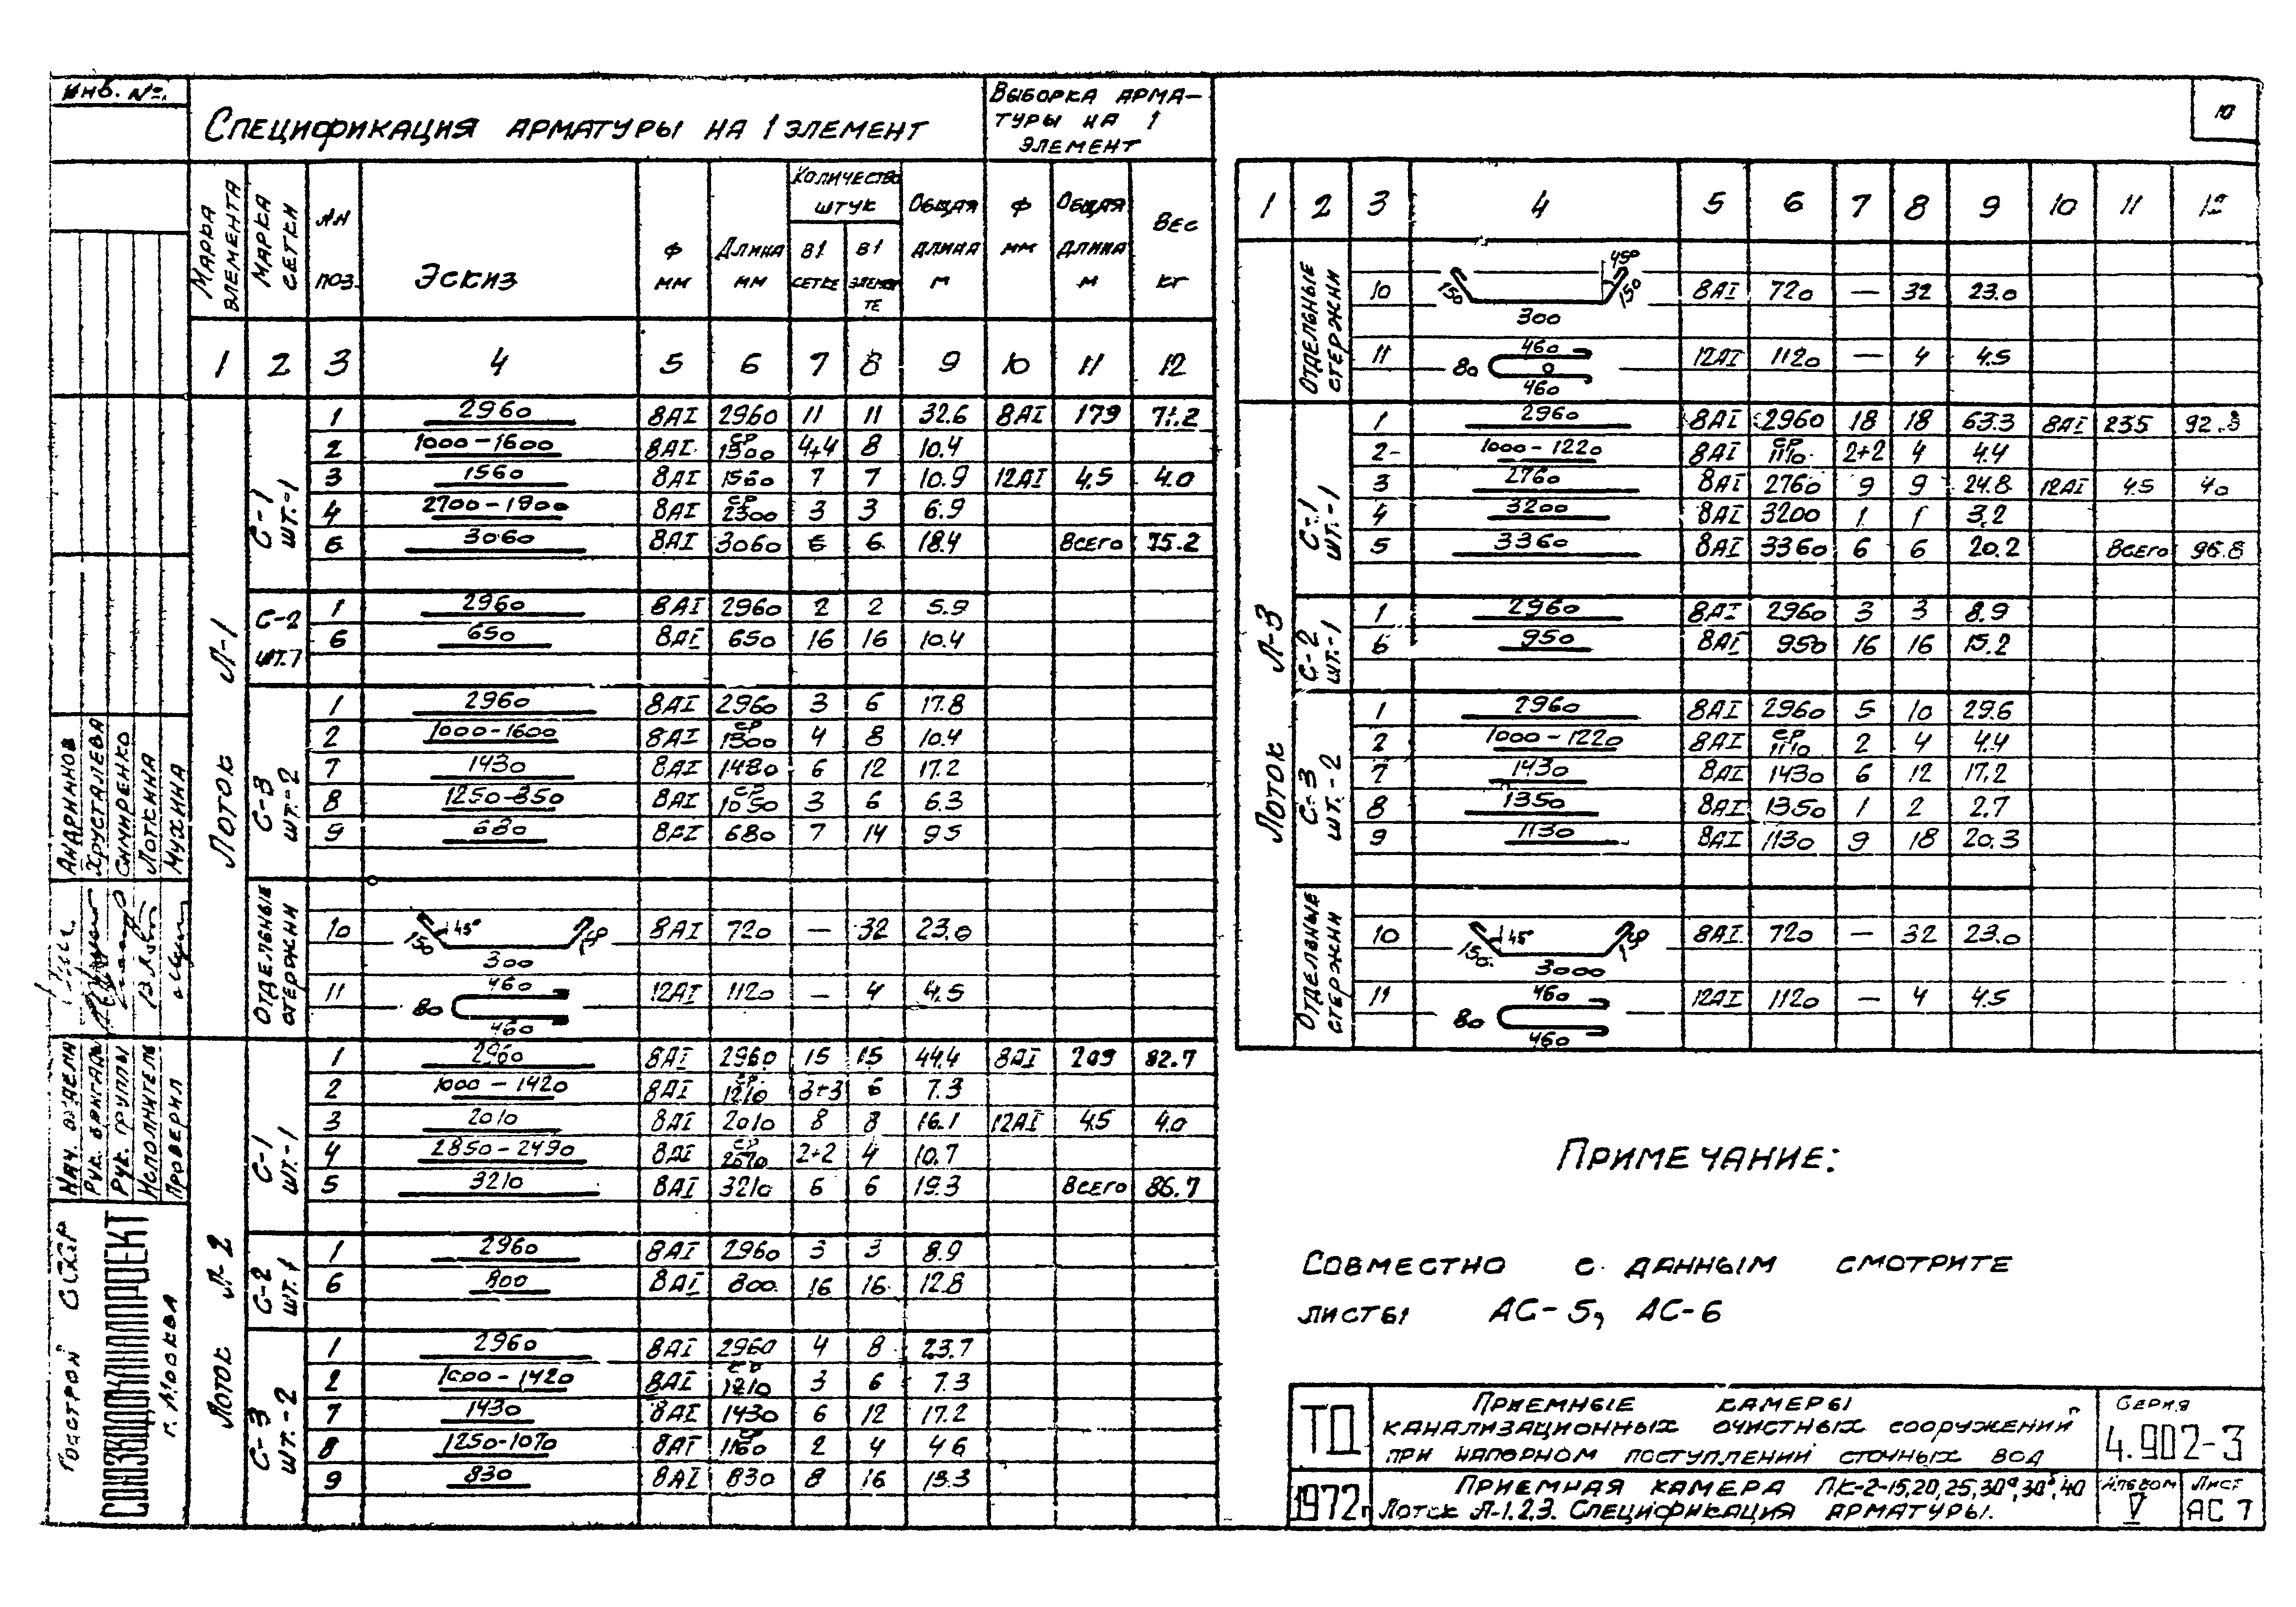 Инв. №
Спецификация арматуры на 1 элемент
Выборка арма-
туры на 1
элемент
Марка элемента
Марка сетки
№№ поз.
Эскиз
Ф мм
Длина мм
Количество штук
в 1 сетке
в 1 элементе
Общая длина м
Ф мм
Общая длина м
Вес кг
1 2 3 4 5 6 7 8 9 10 11 12
Лоток Л-1
С-1 шт.-1
1 2960 8АI 2960 11 11 32.6 8АI 179 71.2
2 1000-1600 8АI ср 1300 4+4 8 10.4
3 1560 8АI 1560 7 7 10.9 12АI 4.5 4.0
4 2700-1900 8АI ср 2300 3 3 6.9
5 3060 8АI 3060 6 6 18.4 Всего 75.2
С-2 шт.1
1 2960 8АI 2960 2 2 5.9
6 650 8АI 650 16 16 10.4
С-3 шт.-2
1 2960 8АI 2960 3 6 17.8
2 1000-1600 8АI ср 1300 4 8 10.4
7 1430 8АI 1430 6 12 17.2
8 1250-850 8АI ср 1050 3 6 6.3
9 680 8АI 680 7 14 9.5
Отдельные стержни
10 150 45° 300 8АI 720 — 32 23.0
11 460 80 460 12АI 1120 — 4 4.5
Лоток Л-2
С-1 шт.-1
1 2960 8АI 2960 15 15 44.4 8АI 209 82.7
2 1000-1420 8АI ср 1210 3+3 6 7.3
3 2010 8АI 2010 8 8 16.1 12АI 4.5 4.0
4 2850-2490 8АI ср 2670 2+2 4 10.7
5 3210 8АI 3210 6 6 19.3 Всего 86.7
С-2 шт.1
1 2960 8АI 2960 3 3 8.9
6 800 8АI 800 16 16 12.8
С-3 шт.-2
1 2960 8АI 2960 4 8 23.7
2 1000-1420 8АI ср 1210 3 6 7.3
7 1430 8АI 1430 6 12 17.2
8 1250-1070 8АI ср 1160 2 4 4.6
9 830 8АI 830 8 16 13.3
10
1 2 3 4 5 6 7 8 9 10 11 12
Отдельные стержни
10 150 300 45° 150 8АI 720 — 32 23.0
11 460 80 460 12АI 1120 — 4 4.5
Лоток Л-3
С-1 шт.-1
1 2960 8АI 2960 18 18 63.3 8АI 235 92.8
2 1000-1220 8АI ср 1110 2+2 4 4.4
3 2760 8АI 2760 9 9 24.8 12АI 4.5 4.0
4 3200 8АI 3200 1 1 3.2
5 3360 8АI 3360 6 6 20.2 Всего 96.8
С-2 шт.-1
1 2960 8АI 2960 3 3 8.9
6 950 8АI 950 16 16 15.2
С-3 шт.-2
1 2960 8АI 2960 5 10 29.6
2 1000-1220 8АI ср 1110 2 4 4.4
7 1430 8АI 1430 6 12 17.2
8 1350 8АI 1350 1 2 2.7
9 1130 8АI 1130 9 18 20.3
Отдельные стержни
10 150 45° 3000 8АI 720 — 32 23.0
11 460 80 460 12АI 1120 — 4 4.5
Примечание:
Совместно с данным смотрите
листы АС-5, АС-6
ТД
Приемные камеры
канализационных очистных сооружений
при напорном поступлении сточных вод
Серия
4.902-3
1972г
Приемная камера ПК-2-15,20,25,30а,30б,40
Лоток Л-1.2.3. Спецификация арматуры.
Альбом
V
Лист
АС 7
Нач. отдела Андрианов
Рук. бригады Хрусталева
Рук. группы Смиренко
Исполнитель Лоткина
Проверил Мухина
Госстрой СССР
СОЮЗВОДОКАНАЛПРОЕКТ
г. Москва